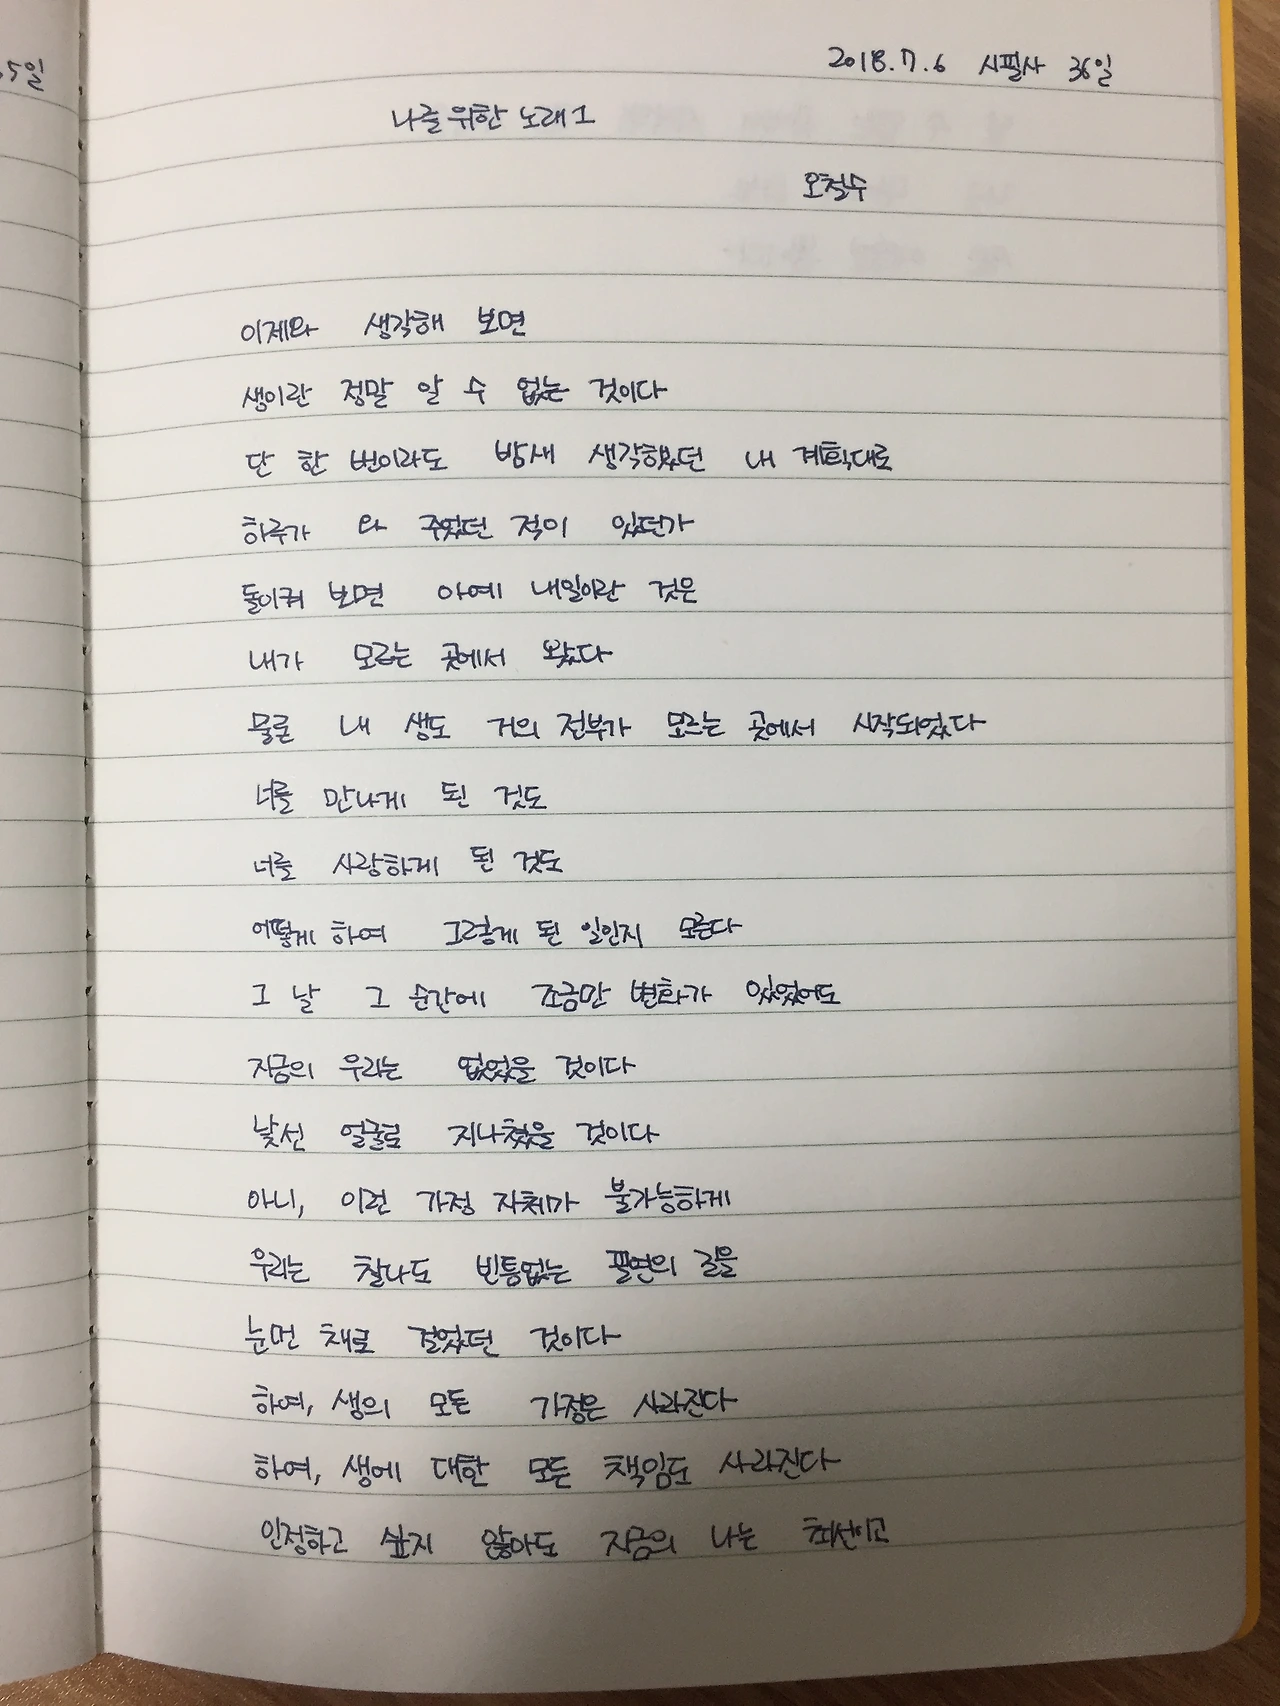 5일
2018.7.6 시필사 36일
나를 위한 노래 1
오철수
이제와 생각해 보면
생이란 정말 알 수 없는 것이다
단 한 번이라도 밤새 생각했던 내 계획대로
하루가 와 주었던 적이 있던가
돌이켜 보면 아예 내일이란 것은
내가 모르는 곳에서 왔다
물론 내 생도 거의 전부가 모르는 곳에서 시작되었다
너를 만나게 된 것도
너를 사랑하게 된 것도
어떻게 하여 그렇게 된 일인지 모른다
그 날 그 순간에 조금만 변화가 있었어도
지금의 우리는 없었을 것이다
낯선 얼굴로 지나쳤을 것이다
아니, 이런 가정 자체가 불가능하게
우리는 찰나도 빈틈없는 필연의 길을
눈먼 채로 걸었던 것이다
하여, 생의 모든 가정은 사라진다
하여, 생에 대한 모든 책임도 사라진다
인정하고 싶지 않아도 지금의 나는 최선이고